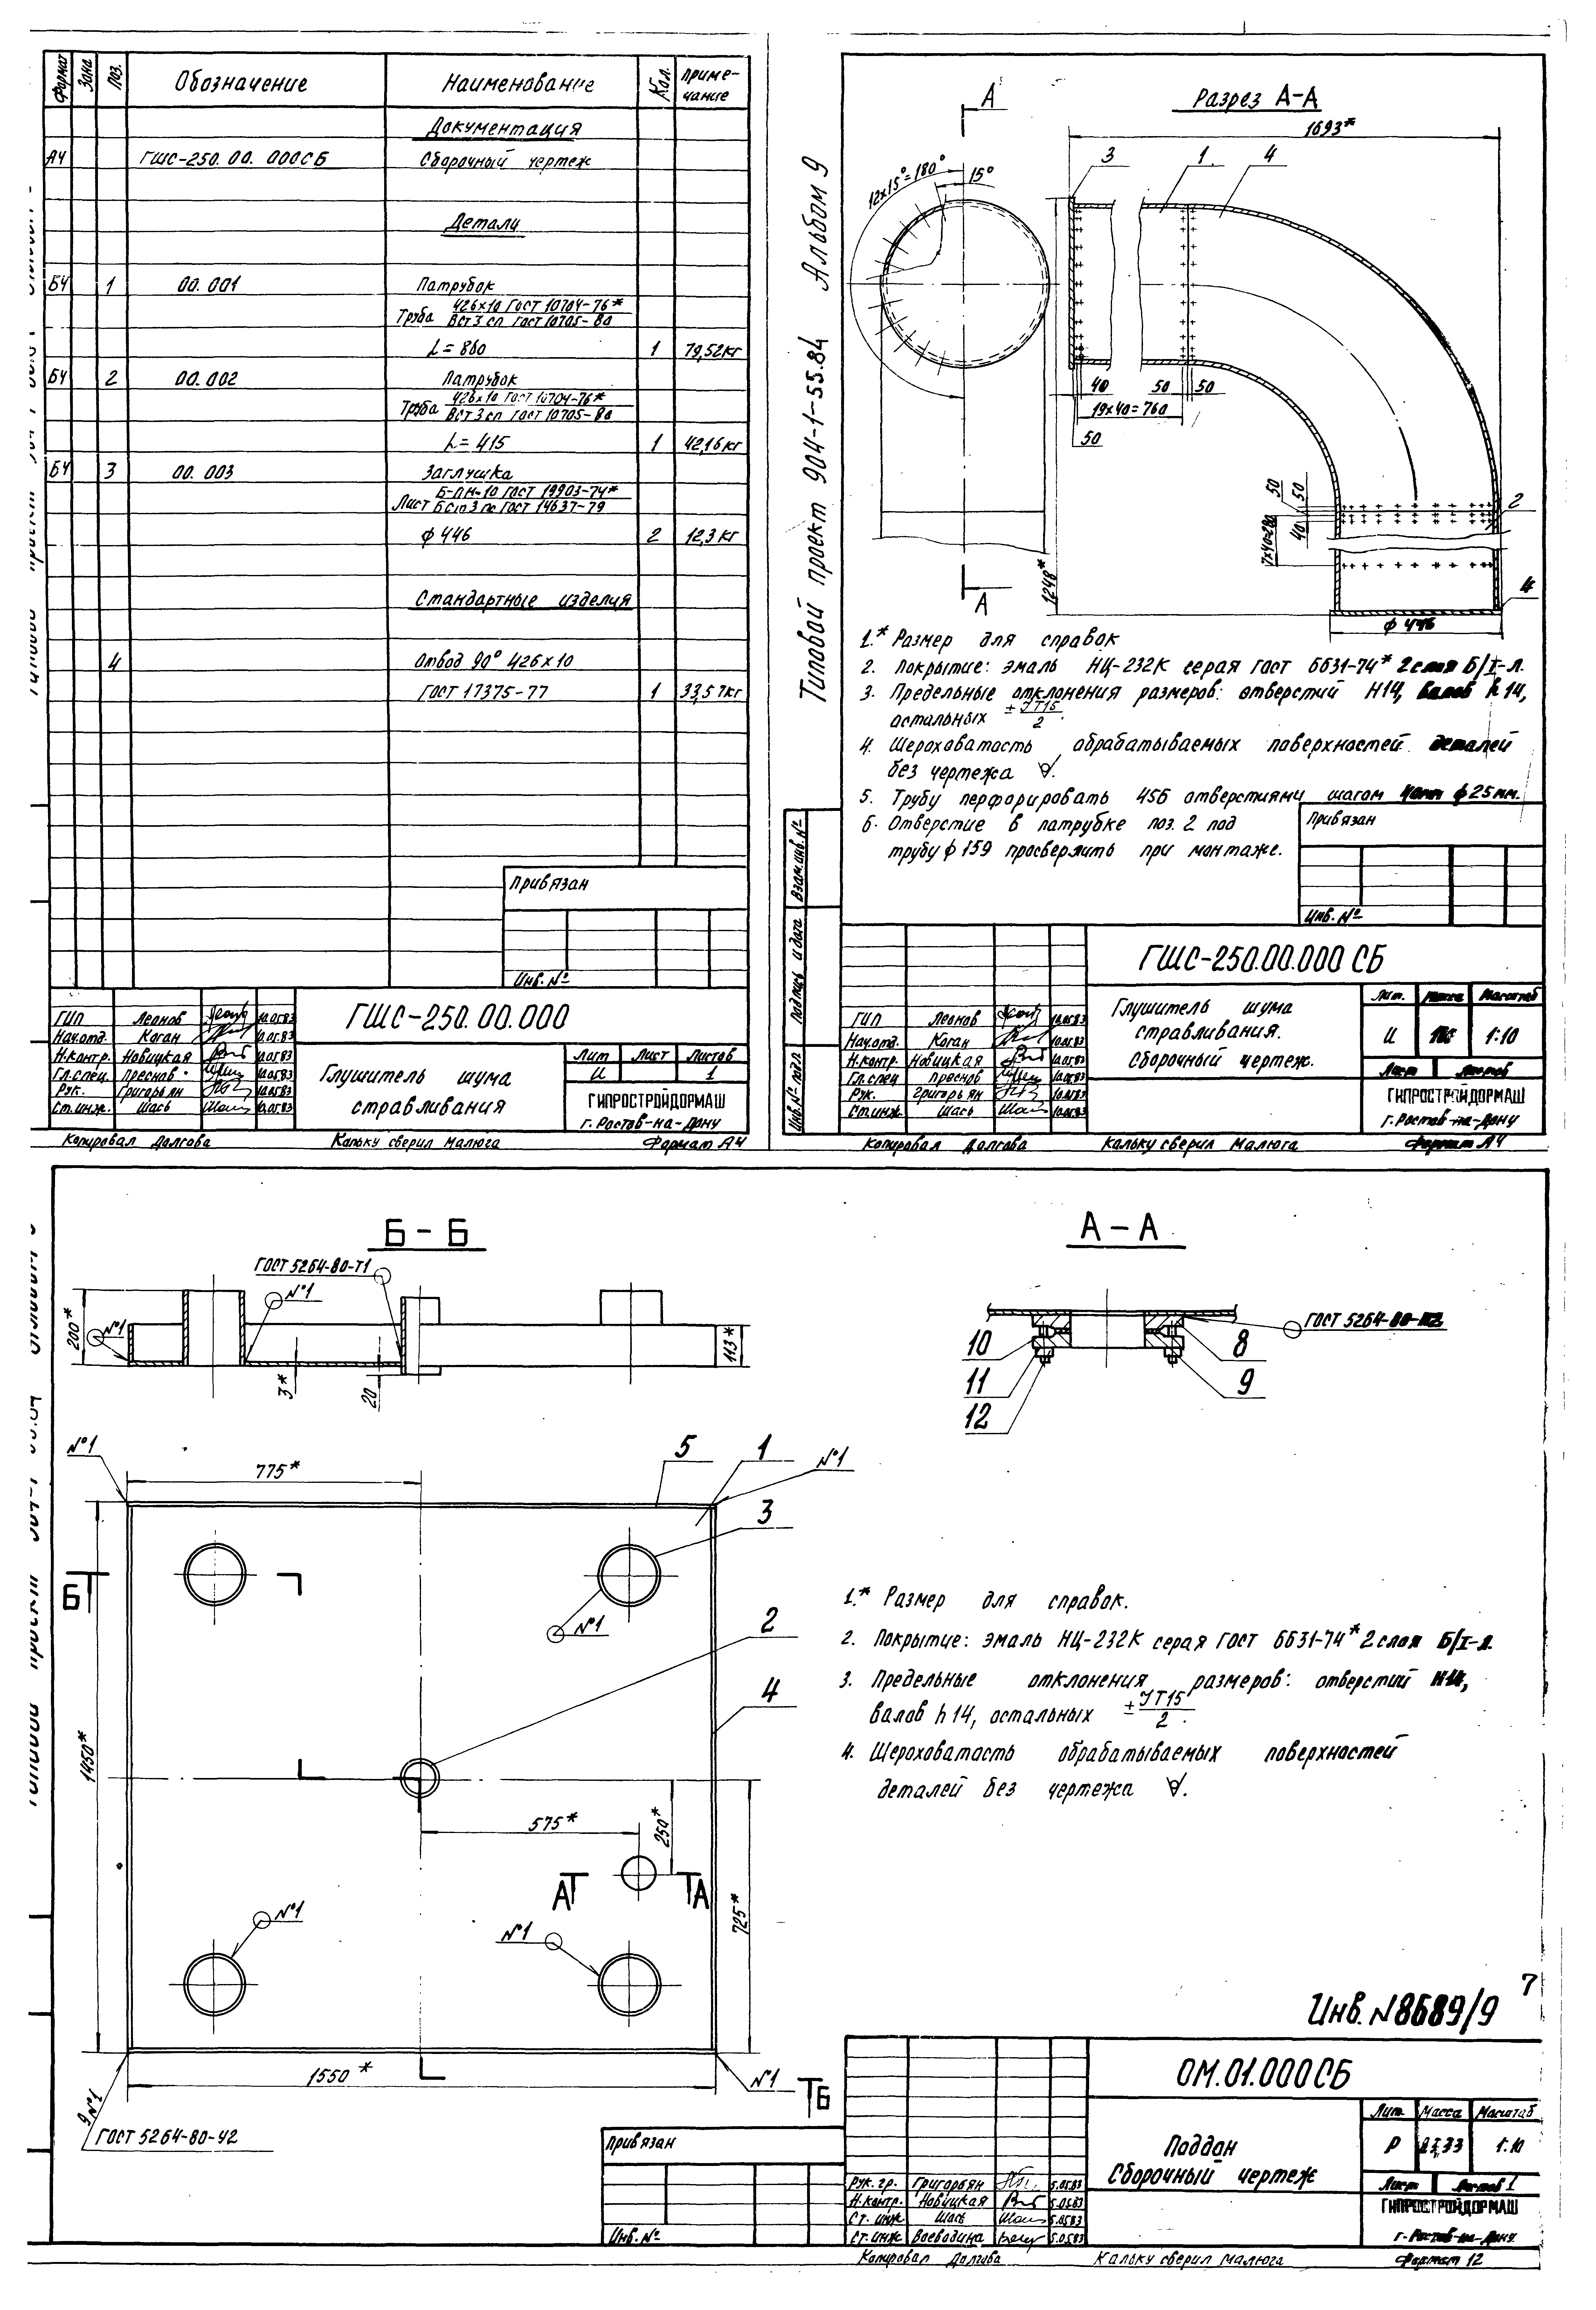 Формат
Зона
Поз.
Обозначение
Наименование
Кол.
Приме-
чание
Документация
А4 ГШС-250.00.000СБ Сборочный чертеж
Детали
БЧ 1 00.001 Патрубок
Труба 426х10 ГОСТ 10704-76*
ВСт3сп ГОСТ 10705-80
L=860 1 79,52кг
БЧ 2 00.002 Патрубок
Труба 426х10 ГОСТ 10704-76*
ВСт3сп ГОСТ 10705-80
L=415 1 42,16кг
БЧ 3 00.003 Заглушка
Лист Б-ПН-10 ГОСТ 19903-74*
ГОСТ 14637-79
φ446 2 12,3кг
Стандартные изделия
4 Отвод 90° 426х10
ГОСТ 17375-77 1 33,57кг
Привязан
Инв. №
ГИП Леонов 10.05.83
Нач.отд. Коган 10.05.83
Н.контр. Новицкая 10.05.83
Гл.спец. Преснов 10.05.83
Рук. Григорьян 10.05.83
Ст.инж. Шась 10.05.83
ГШС-250.00.000
Глушитель шума
стравливания
Лит Лист Листов
И 1
ГИПРОСТРОЙДОРМАШ
г. Ростов-на-Дону
Копировал Долгова Кальку сверил Малюга Формат А4
Типовой проект 904-1-55.84 Альбом 9
А
Разрез А-А
1693*
3 1. 4
12х15°=180°
15°
40 50 50
19х40=760
50
50 50
40
7х40=280
2
1248*
4
А
φ446
1.* Размер для справок
2. Покрытие: эмаль НЦ-232К серая ГОСТ 6631-74* 2 слоя Б/I-Л.
3. Предельные отклонения размеров: отверстий Н14, валов h14,
остальных ± IT15/2.
4. Шероховатость обрабатываемых поверхностей деталей
без чертежа.
5. Трубу перфорировать 456 отверстиями шагом 40мм φ25мм.
6. Отверстие в патрубке поз. 2 под
трубу φ159 просверлить при монтаже.
Привязан
Инв. №
Взам.инв.№
Подпись и дата
Инв.№ подл.
ГИП Леонов 10.05.83
Нач.отд. Коган 10.05.83
Н.контр. Новицкая 10.05.83
Гл.спец Преснов 10.05.83
Рук. Григорьян 10.05.83
Ст.инж. Шась 10.05.83
ГШС-250.00.000 СБ
Глушитель шума
стравливания.
Сборочный чертеж.
Лит. Масса Масштаб
И 1:10
Лист Листов
ГИПРОСТРОЙДОРМАШ
г. Ростов-на-Дону
Копировал Долгова Кальку сверил Малюга Формат А4
Б - Б
ГОСТ 5264-80-Т1
№1
№1
200*
3*
20
113*
А - А
ГОСТ 5264-80
10 8
11 9
12
№1
775*
5 1
№1
3
Б
№1
2
4
1450*
575*
250*
А А
725*
№1
№1
1550*
№1
Б
№1
ГОСТ 5264-80-У2
1.* Размер для справок.
2. Покрытие: эмаль НЦ-232К серая ГОСТ 6631-74* 2 слоя Б/I-Л.
3. Предельные отклонения размеров: отверстий Н14,
валов h14, остальных ± IT15/2.
4. Шероховатость обрабатываемых поверхностей
деталей без чертежа.
7
Инв. N8689/9
Привязан
Инв. №
Рук. гр. Григорьян 5.05.83
Н.контр. Новицкая 5.05.83
Ст. инж. Шась 5.05.83
Ст. инж Воеводина 5.05.83
ОМ.01.000СБ
Поддон
Сборочный чертеж
Лит. Масса Масштаб
Р 1:10
Лист Листов 1
ГИПРОСТРОЙДОРМАШ
г. Ростов-на-Дону
Копировал Долгова Кальку сверил Малюга Формат 12